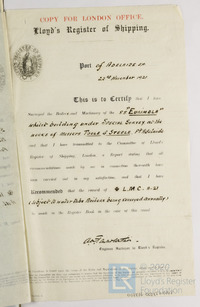 COPY FOR LONDON OFFICE.
Lloyd's Register of Shipping.
Port of ADELAIDE SA
23rd November 1921
This is to Certify that I have
Surveyed the Boilers and Machinery of the SS "EURIMBLA"
whilst building under Special Survey at the
works of Messrs Poole & Steele Pt Adelaide
and that I have transmitted to the Committee of Lloyd's
Register of Shipping, London, a Report stating that all
recommendations made by me in connection therewith have
been carried out to my satisfaction, and that I have
Recommended that the record of + L.M.C. 11-21
(Subject to water tube Boilers being surveyed annually)
be made in the Register Book in the case of this vessel.
Engineer Surveyor to Lloyd's Register.
© 2020
Lloyd's Register
Foundation